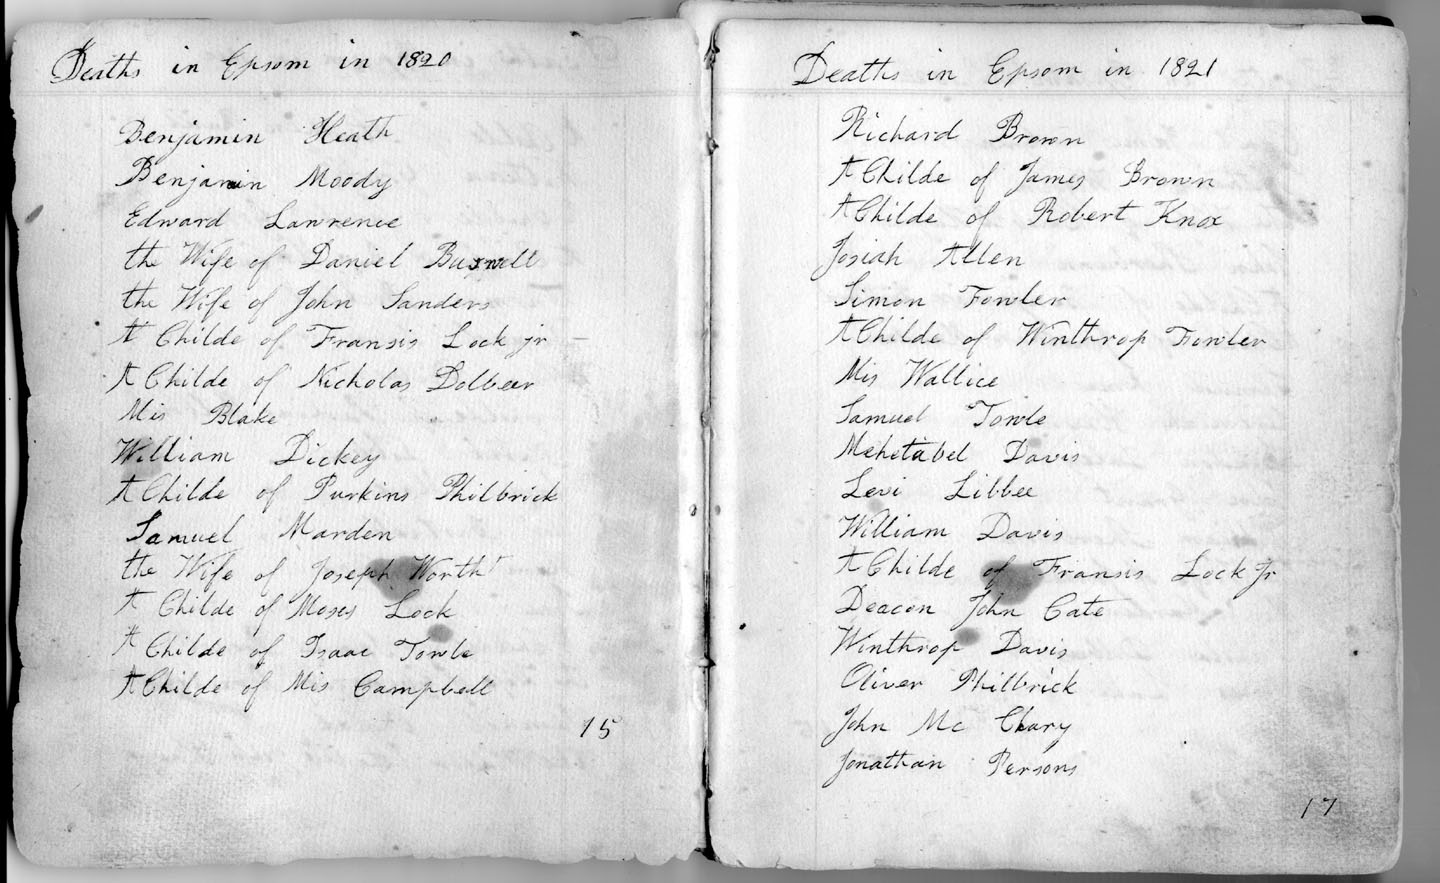 Deaths in Epsom in 1820
Benjamin Heath
Benjamin Moody
Edward Lawrence
the Wife of Daniel Buswell
the Wife of John Sanders
A Childe of Fransis Lock jr
A Childe of Nicholas Dolbeer
Mis Blake
William Dickey
A Childe of Purkins Philbrick
Samuel Marden
the Wife of Joseph Worth
A Childe of Moses Lock
A Childe of Isaac Towle
A Childe of Mis Campbell
15
Deaths in Epsom in 1821
Richard Brown
A Childe of James Brown
A Childe of Robert Knox
Josiah Allen
Simon Fowler
A Childe of Winthrop Fowler
Mis Wallice
Samuel Towle
Mehetabel Davis
Levi Libbee
William Davis
A Childe of Fransis Lock Jr
Deacon John Cate
Winthrop Davis
Oliver Philbrick
John Mc Clary
Jonathan Persons
17